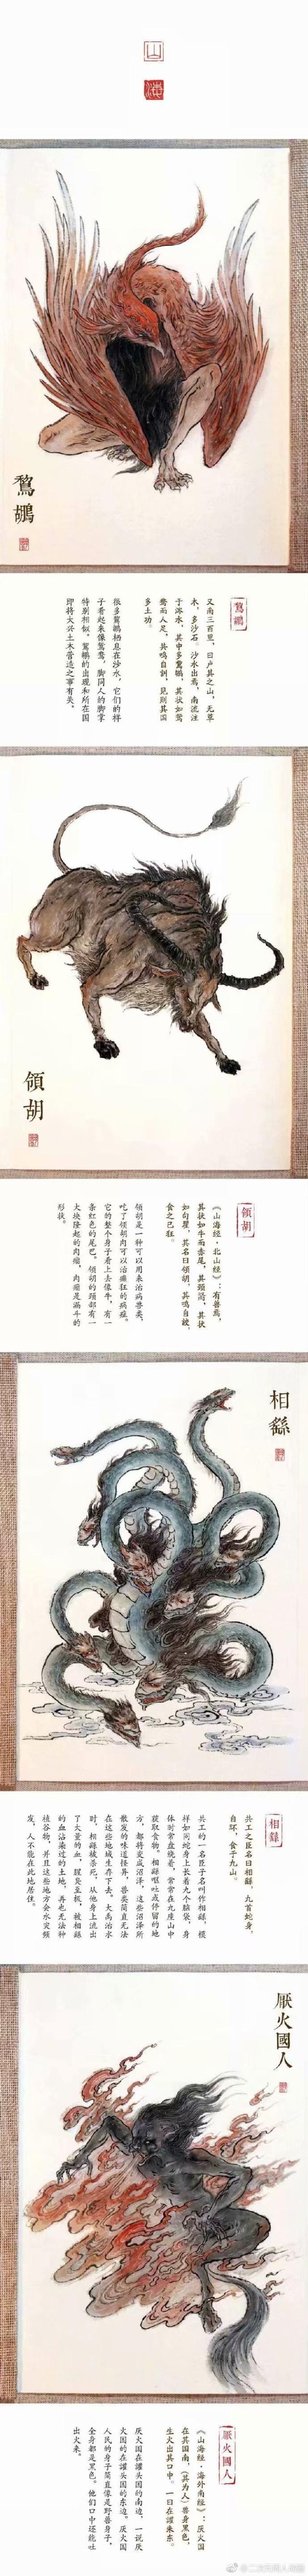 山
海
鵹鶘
鵹鶘
又南三百里，曰卢其之山，无草
木，多沙石，沙水出焉，南流注
于涔水，其中多鵹鶘，其状如鸳
鸯而人足，其鸣自訆，见则其国
多土功。
很多鵹鶘栖息在沙水，它们的样
子看起来像鸳鸯，脚同人的脚掌
特别相似。鵹鶘的出现和所在国
即将大兴土木营造之事有关。
領胡
領胡
《山海经·北山经》：有兽焉，
其状如牛而赤尾，其颈䐁，其状
如句瞿，其名曰領胡，其鸣自詨，
食之已狂。
領胡是一种可以用来治病兽类，
吃了領胡肉可以治癫狂的病症。
它的整个身子看上去像牛，有一
条红色的尾巴。領胡的颈部有一
大块隆起的肉瘤，肉瘤是漏斗的
形状。
相繇
相繇
共工之臣名曰相繇，九首蛇身，
自环，食于九山。
共工的一名臣子名叫作相繇，模
样如同蛇身上长着九个脑袋，身
体时常盘绕着，常常在九座山中
获取食物。相繇呕吐或停留的地
方，都将变成沼泽，这些沼泽所
散发的味道怪异，兽类简直无法
在这些地域生存下去。大禹治水
时，相繇被杀死，从他身上流出
了大量的血，腥臭至极，被相繇
的血沾染过的土地，再也无法种
植谷物，并且这些地方会水灾频
发，人不能在此地居住。
厭火國人
厭火國人
《山海经·海外南经》：厌火国
在其国南，（其为人）兽身黑色，
生火出其口中。一曰在讙朱东。
厌火国在讙头国的南边，一说厌
火国的在讙头国的东边。厌火国
人民的身子简直像是野兽身子，
全身都是黑色。他们口中还能吐
出火来。